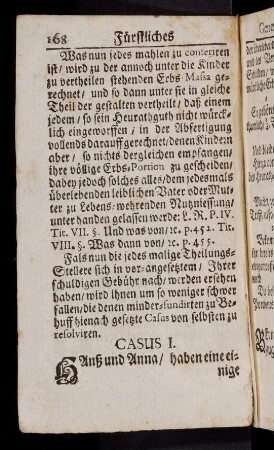 168 Fürstliches
Was nun jedes mahlen zu conferiren
ist / wird zu der annoch unter die Kinder
zu vertheilen stehenden Erbs-Massa ge-
rechnet / und so dann unter sie in gleiche
Theil der gestalten vertheilt / daß einem
jedem / so sein Heurathguth nicht würck-
lich eingeworffen / in der Abfertigung
vollends darauff gerechnet / denen Kindern
aber / so nichts dergleichen empfangen /
ihre völlige Erbs-Portion zu gescheiden /
dabey jedoch solches alles / dem jedesmals
überlebenden leiblichen Vater oder Mut-
ter zu Lebens-wehrenden Nutzniessung /
unter handen gelassen werde: L. R. P. IV.
Tit. VII. §. Und was von / ꝛc. p. 452. Tit.
VIII. §. Was dann von / ꝛc. p. 455.
Fals nun die jedes malige Theilungs-
Stellere sich in vor-angesetztem / Ihrer
schuldigen Gebühr nach / werden ersehen
haben / wird ihnen um so weniger schwer
fallen / die denen minder-fundirten zu Be-
huff hienach gesetzte Casus von selbsten zu
resolviren.
CASUS I.
Hanß und Anna / haben eine ei-
nige